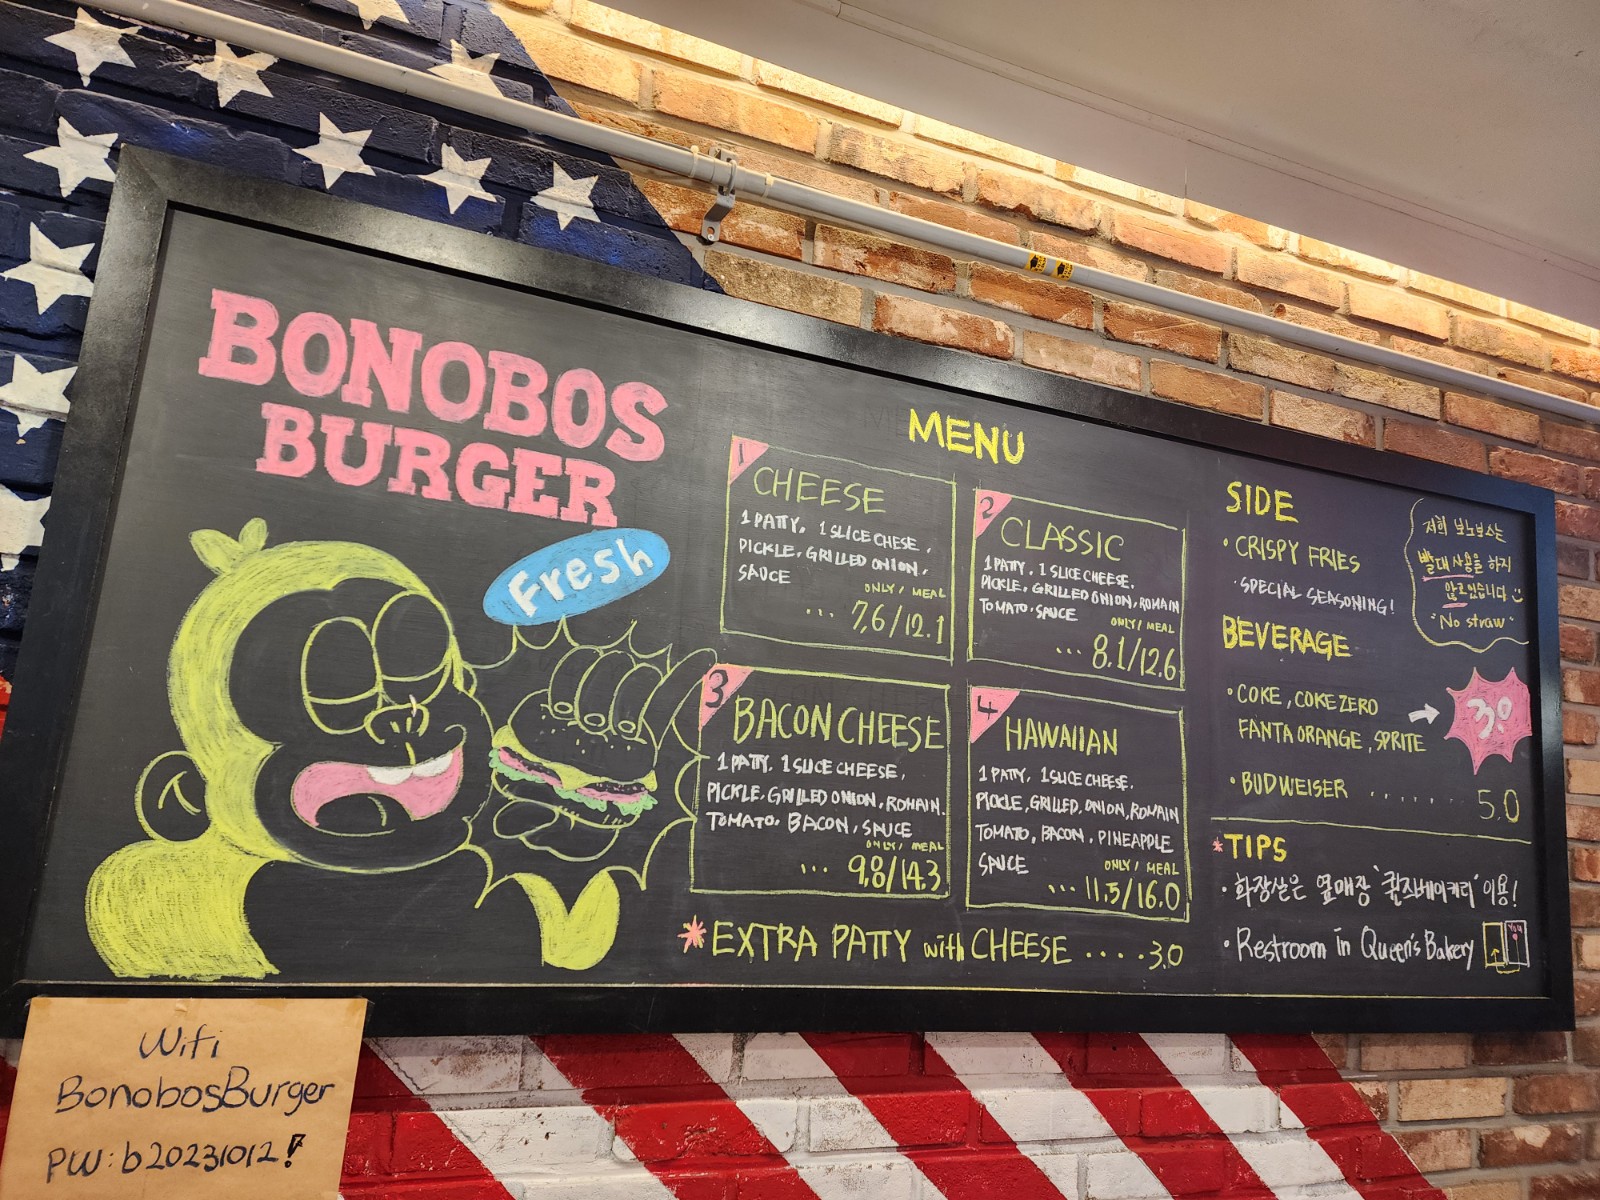 BONOBOS
BURGER
Fresh
MENU
1
CHEESE
1 PATTY, 1 SLICE CHESE,
PICKLE, GRILLED ONION,
SAUCE
ONLY / MEAL
... 7,6/12.1
2
CLASSIC
1 PATTY, 1 SLICE CHEESE,
PICKLE, GRILLED ONION, ROMAIN
TOMATO, SAUCE
ONLY / MEAL
... 8.1/12.6
3
BACON CHEESE
1 PATTY, 1 SLICE CHEESE,
PICKLE, GRILLED ONION, ROMAIN.
TOMATO, BACON, SAUCE
ONLY / MEAL
... 9,8/14.3
4
HAWAIIAN
1 PATTY, 1 SLICE CHEESE,
PICKLE, GRILLED, ONION, ROMAIN
TOMATO, BACON, PINEAPPLE
SAUCE
ONLY / MEAL
... 11.5/16.0
*EXTRA PATTY with CHEESE ....3.0
SIDE
· CRISPY FRIES
· SPECIAL SEASONING!
저희 보노보스는
빨대 사용을 하지
않고있습니다
"No straw"
BEVERAGE
· COKE, COKE ZERO
FANTA ORANGE, SPRITE
3.0
· BUDWEISER ....... 5.0
*TIPS
· 화장실은 옆매장 '퀸즈베이커리' 이용!
· Restroom in Queen's Bakery
You
Wifi
BonobosBurger
PW: b20231012!